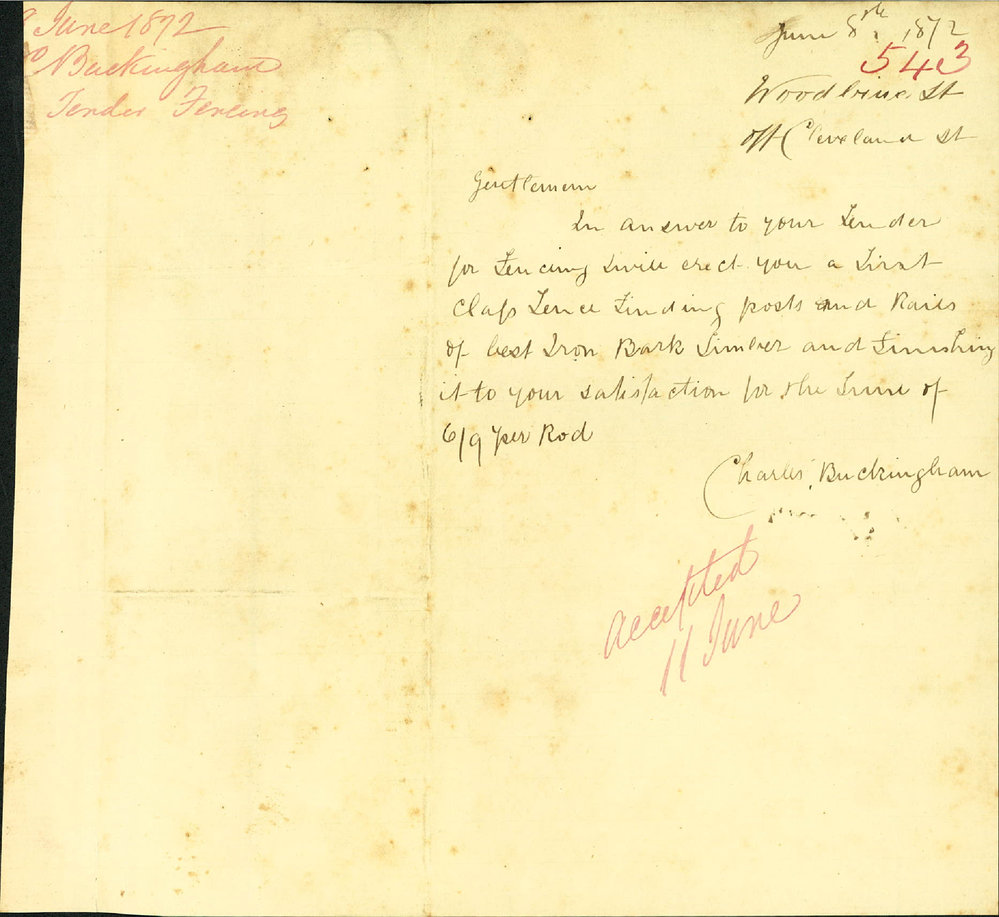 June 1872
Buckingham
Tender Fencing
June 8th, 1872
543
Woodbine St
off Cleveland St
Gentlemen
In answer to your Tender
for Fencing I will erect you a First
Class Fence Finding posts and Rails
of best Iron Bark Timber and Finishing
it to your satisfaction for the Sum of
6/9 per Rod
Charles Buckingham
Accepted
11 June